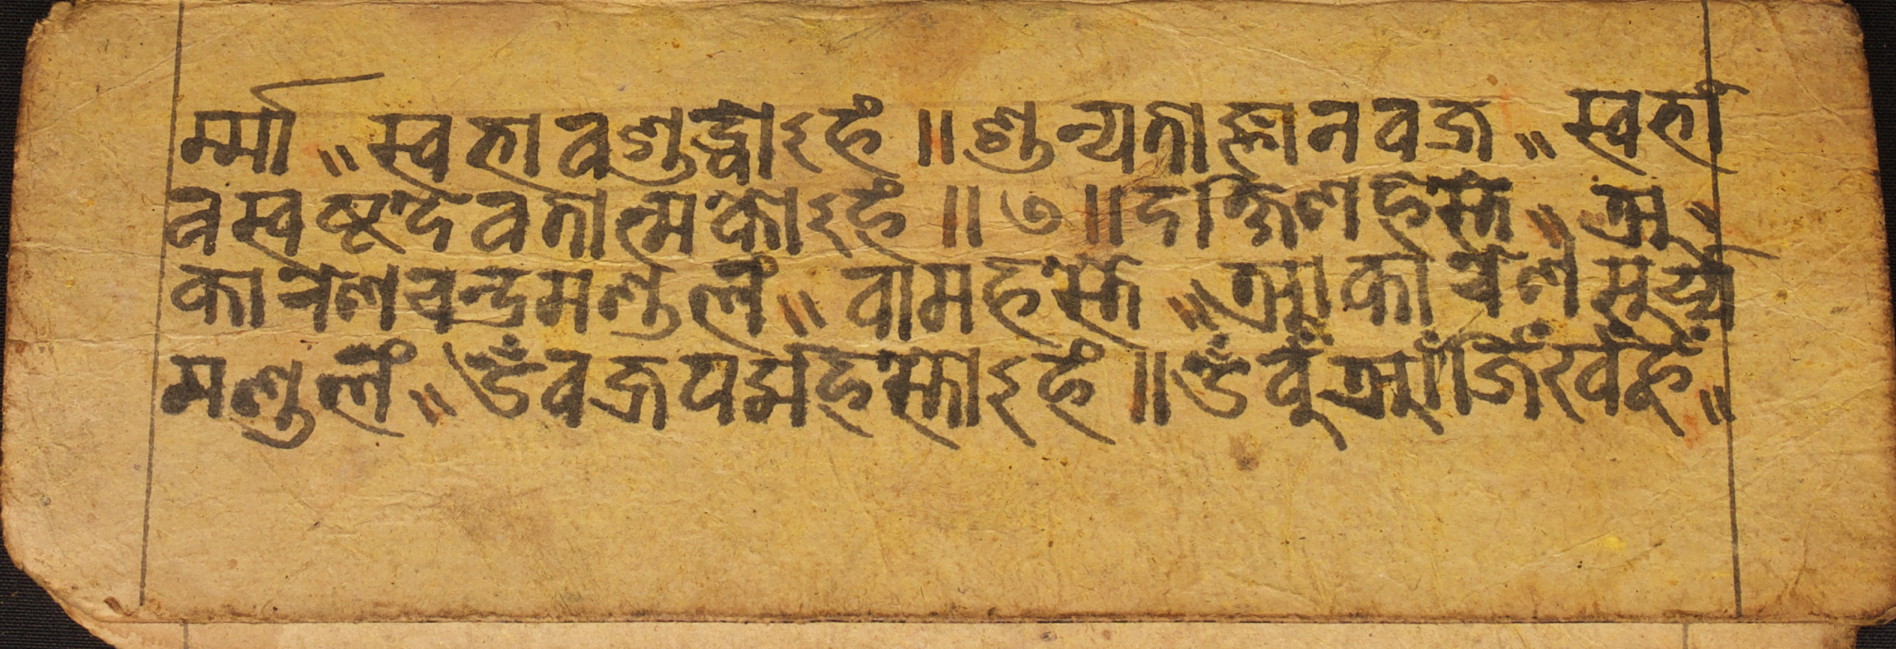 र्म्मा॥ स्वभावशुद्धोऽहं॥ शुन्यताज्ञानवज्र॥ स्वभा
वस्वष्टदेवतात्मकोऽहं॥ ७॥ दक्षिणहस्ते॥ अ
कारेणचन्द्रमण्डलं॥ वामहस्ते॥ आकारेणसूर्य्य
मण्डलं॥ ॐवज्रपद्महस्तोऽहं॥ ॐवूँआँजिँखँहूँ॥